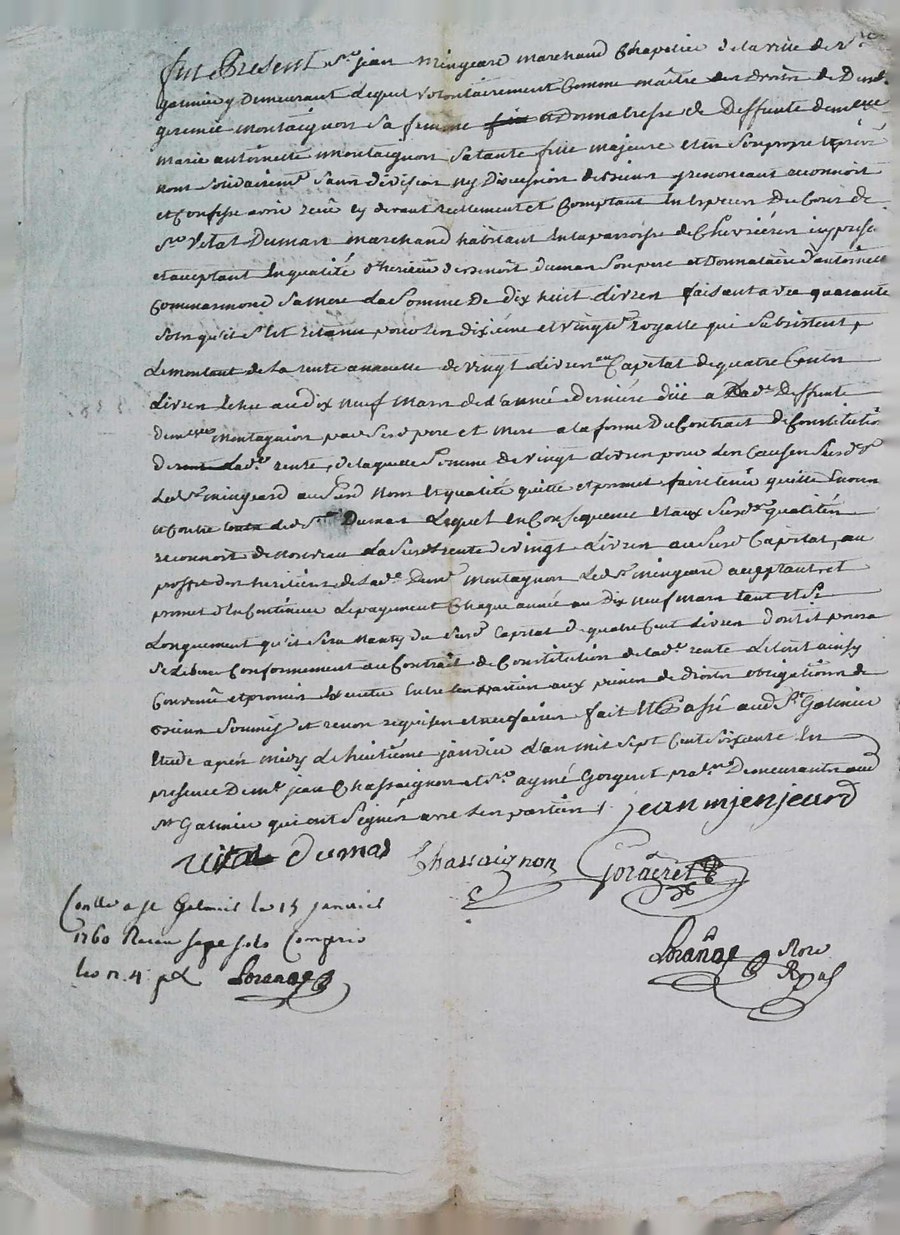 fut Présent Sr jean Mingeard marchand Chapelier de la ville de St
galmier y demeurant lequel volontairement Comme maître des droits de
montaignon sa femme donnatresse de deffunte demelle
marie antoinette montaignon sa tante fille majeure et en son propre et privé
nom solidairemt sans division ny discussion de biens y renonceant a reconnoit
et Confesse avoir reçu cy devant reellement et Comptant en especes du cours de
Sr Vital Dumas marchand habitant en la parroisse de Chevrières icy présent
et acceptant en qualité d'heritier de benoit dumas son pere et donnataire d'antoinette
Commarmond sa mere la somme de dix huit livres faisant avec quarante
sols qu'il s'est retenu pour les dixiéme et vingtme royalle qui subsistent,
le montant de la rente annuelle de vingt livres au Capital de quatre Cents
livres échue au dix neuf mars de l'année derniére düe a Lade deffunte
demelle Montagnon par sesd pere et mere a la forme du Contrat de Constitution
de lade rente, de laquelle somme de vingt livres pour les Causes susdes
Ledt Sr mingeard aud nom et qualité quitte et promet faire tenir quitte envers
et contre tous led Sr Dumas Lequel en Consequence et aux susdes qualités
reconnoit de nouveau la susde rente de vingt livres au susd Capital, au
proffit des heritiers de lade demlle Montagnon Ledt Sr mingeard acceptant et
promet d'en Continuer le payement Chaque année au dix neuf mars tant et si
Longuement qu'il sera nanty du susd Capital de quatre Cent livres dont il pourra
se liberer Conformement au Contrait de Constitution de lade rente L'etout ainsy
Convenu et promis executer entre les parties aux peines de droits obligations de
biens soumis et renon requises et necessaires fait et Passé aud St Galmier
Etude aprés midy le huitiéme janvier l'an mil sept Cent soixante En
presence de me jean Chassaignon et Sr aymé Gorgeret pratns Demeurants aud
St Galmier qui ont signés avec les parties /. jean mjenjeard
Vital Dumas Chassaignon Gorgeret
Conllé a St Galmier le 15 janvier
1760 Receu sept sols Compris
les n. 4 pd Lorange
Lorange Nore
Royal